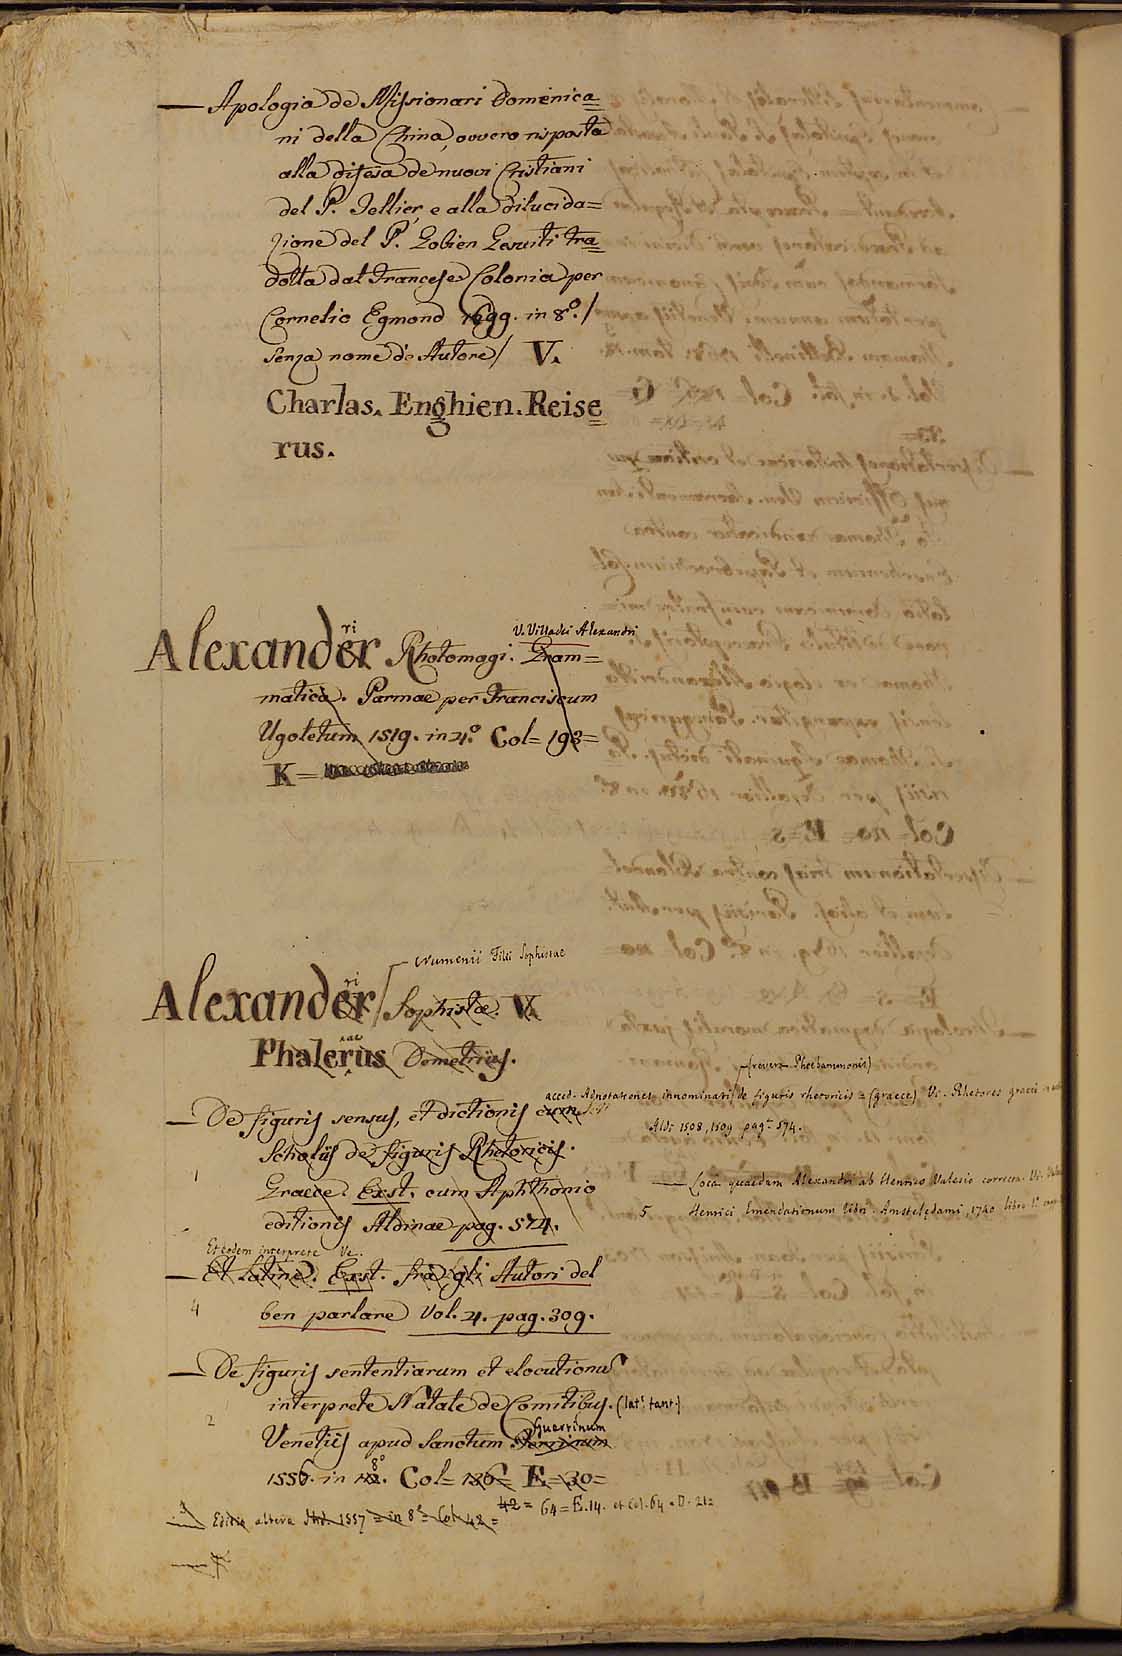 — Apologia de Missionari Domenica=
ni della China, ovvero risposta
alla difesa de nuovi Cristiani
del P. Tellier, e alla dilucida=
zione del P. Gobien Gesuiti tra=
dotta dal Francese. Colonia per
Cornelio Egmond 1699. in 8.º /
senza nome di Autore / V.
Charlas. Enghien. Reise=
rus.
V. Villadei Alexandri
Alexander ri Rhotomagi. Gram=
matica. Parmae per Franciscum
Ugoletum 1519. in 4.º Col= 193=
K=
Numenii Filii Sophistae
Alexander ri / Sophistae. V.
Phalerus Demetrius.
(revera Phoebammonis)
acced. Adnotationes innominati de figuris rhetoricis = (graece) V. Rhetores graeci
— De figuris sensus, et dictionis cum
Aldi 1508, 1509 pag. 574.
Scholiis de figuris Rhetoricis.
1 Graece. Exst. cum Aphthonio
— Loca quaedam Alexandri ab Henrico Valesio correcta. V.
editionis Aldinae pag. 574.
5 Henrici Emendationum libri. Amstelędami, 1740 libro
Et eodem interprete Ve.
— Et Latine. Exst. fra gli Autori del
4 ben parlare Vol. 4. pag. 309.
— De figuris sententiarum et elocutionus
interprete Natale de Comitibus. (lat. tant.)
Guerrinum
2 Venetiis apud Sanctum
8º
1556. in 12. Col= 136= E=30=
42= 64=E.14. et Col. 64 = D. 212
3 — Editio altera ibid. 1557 = in 8º = Col 42 =